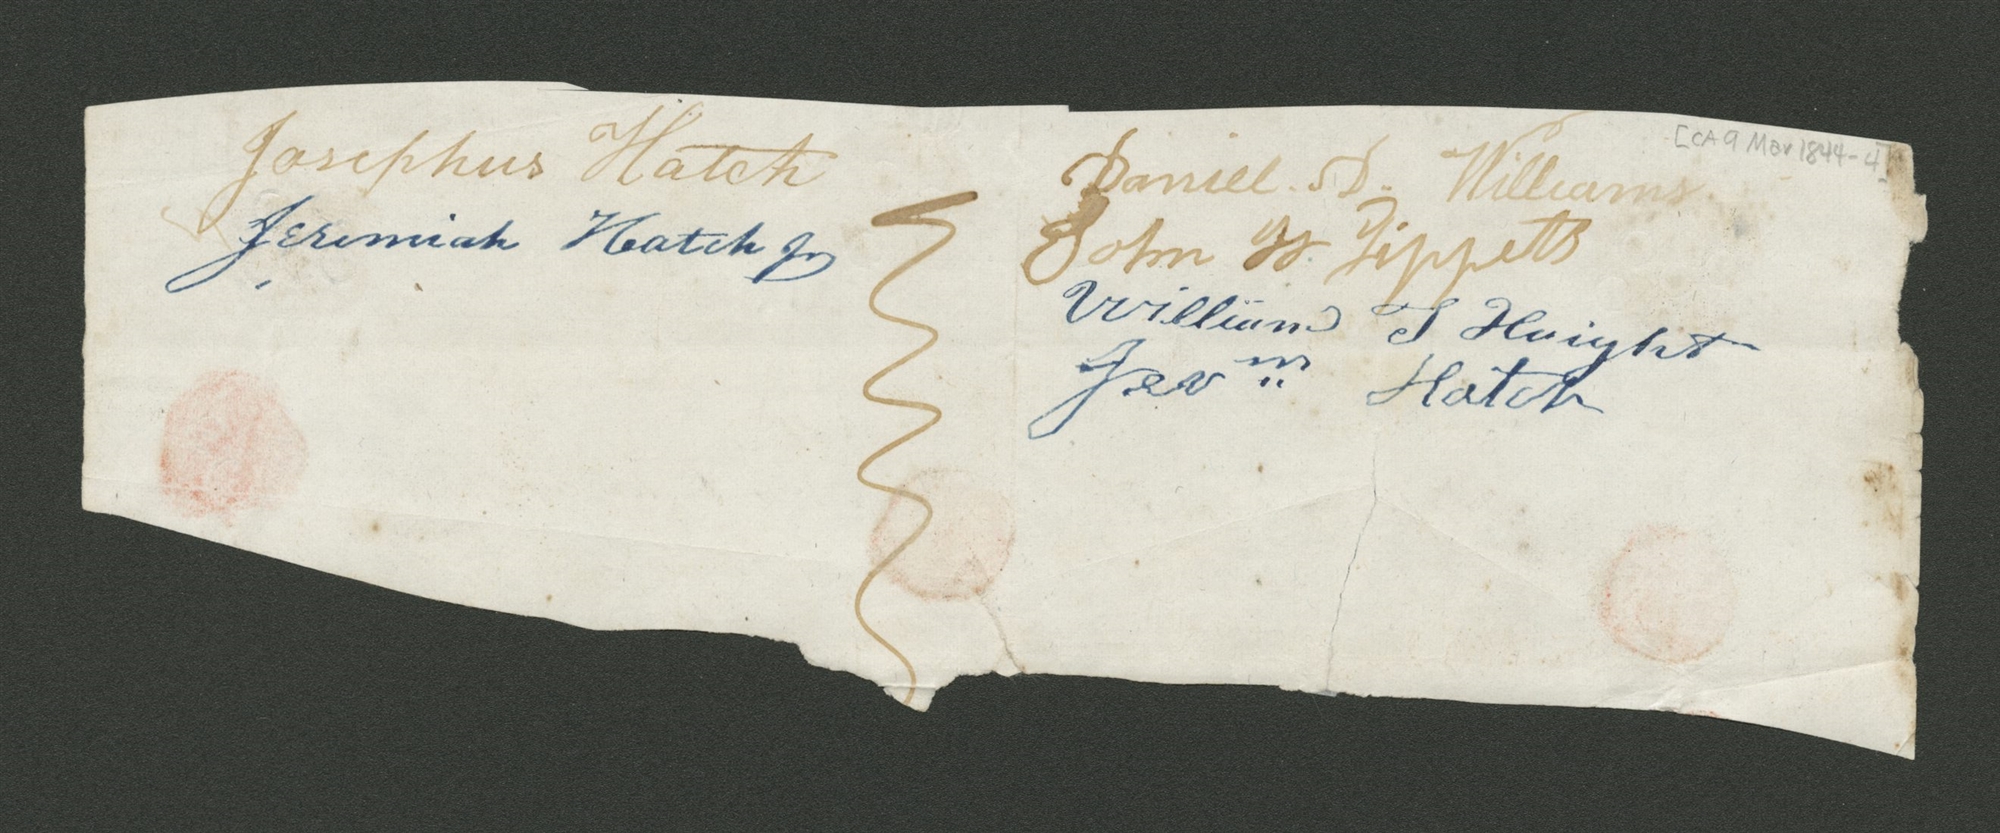 [CA 9 Mar 1844-4]
Josephus Hatch
Jeremiah Hatch Jr
Daniell. D. Williams
John H. Tippetts
William T Haight
Jerm Hatch